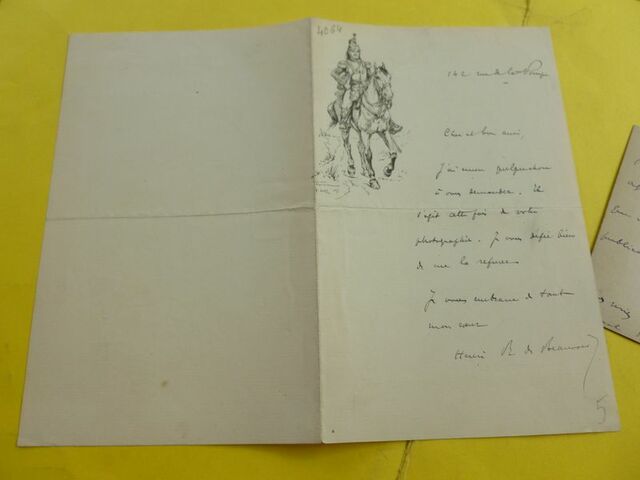 4064
142 rue de la Pompe
Cher et bon ami,
J'ai encore quelque chose
à vous demander. Il
s'agit cette fois de votre
photographie. Je vous défie bien
de me la refuser
Je vous embrasse de tout
mon cœur
Henri R. de Beauvoir
5